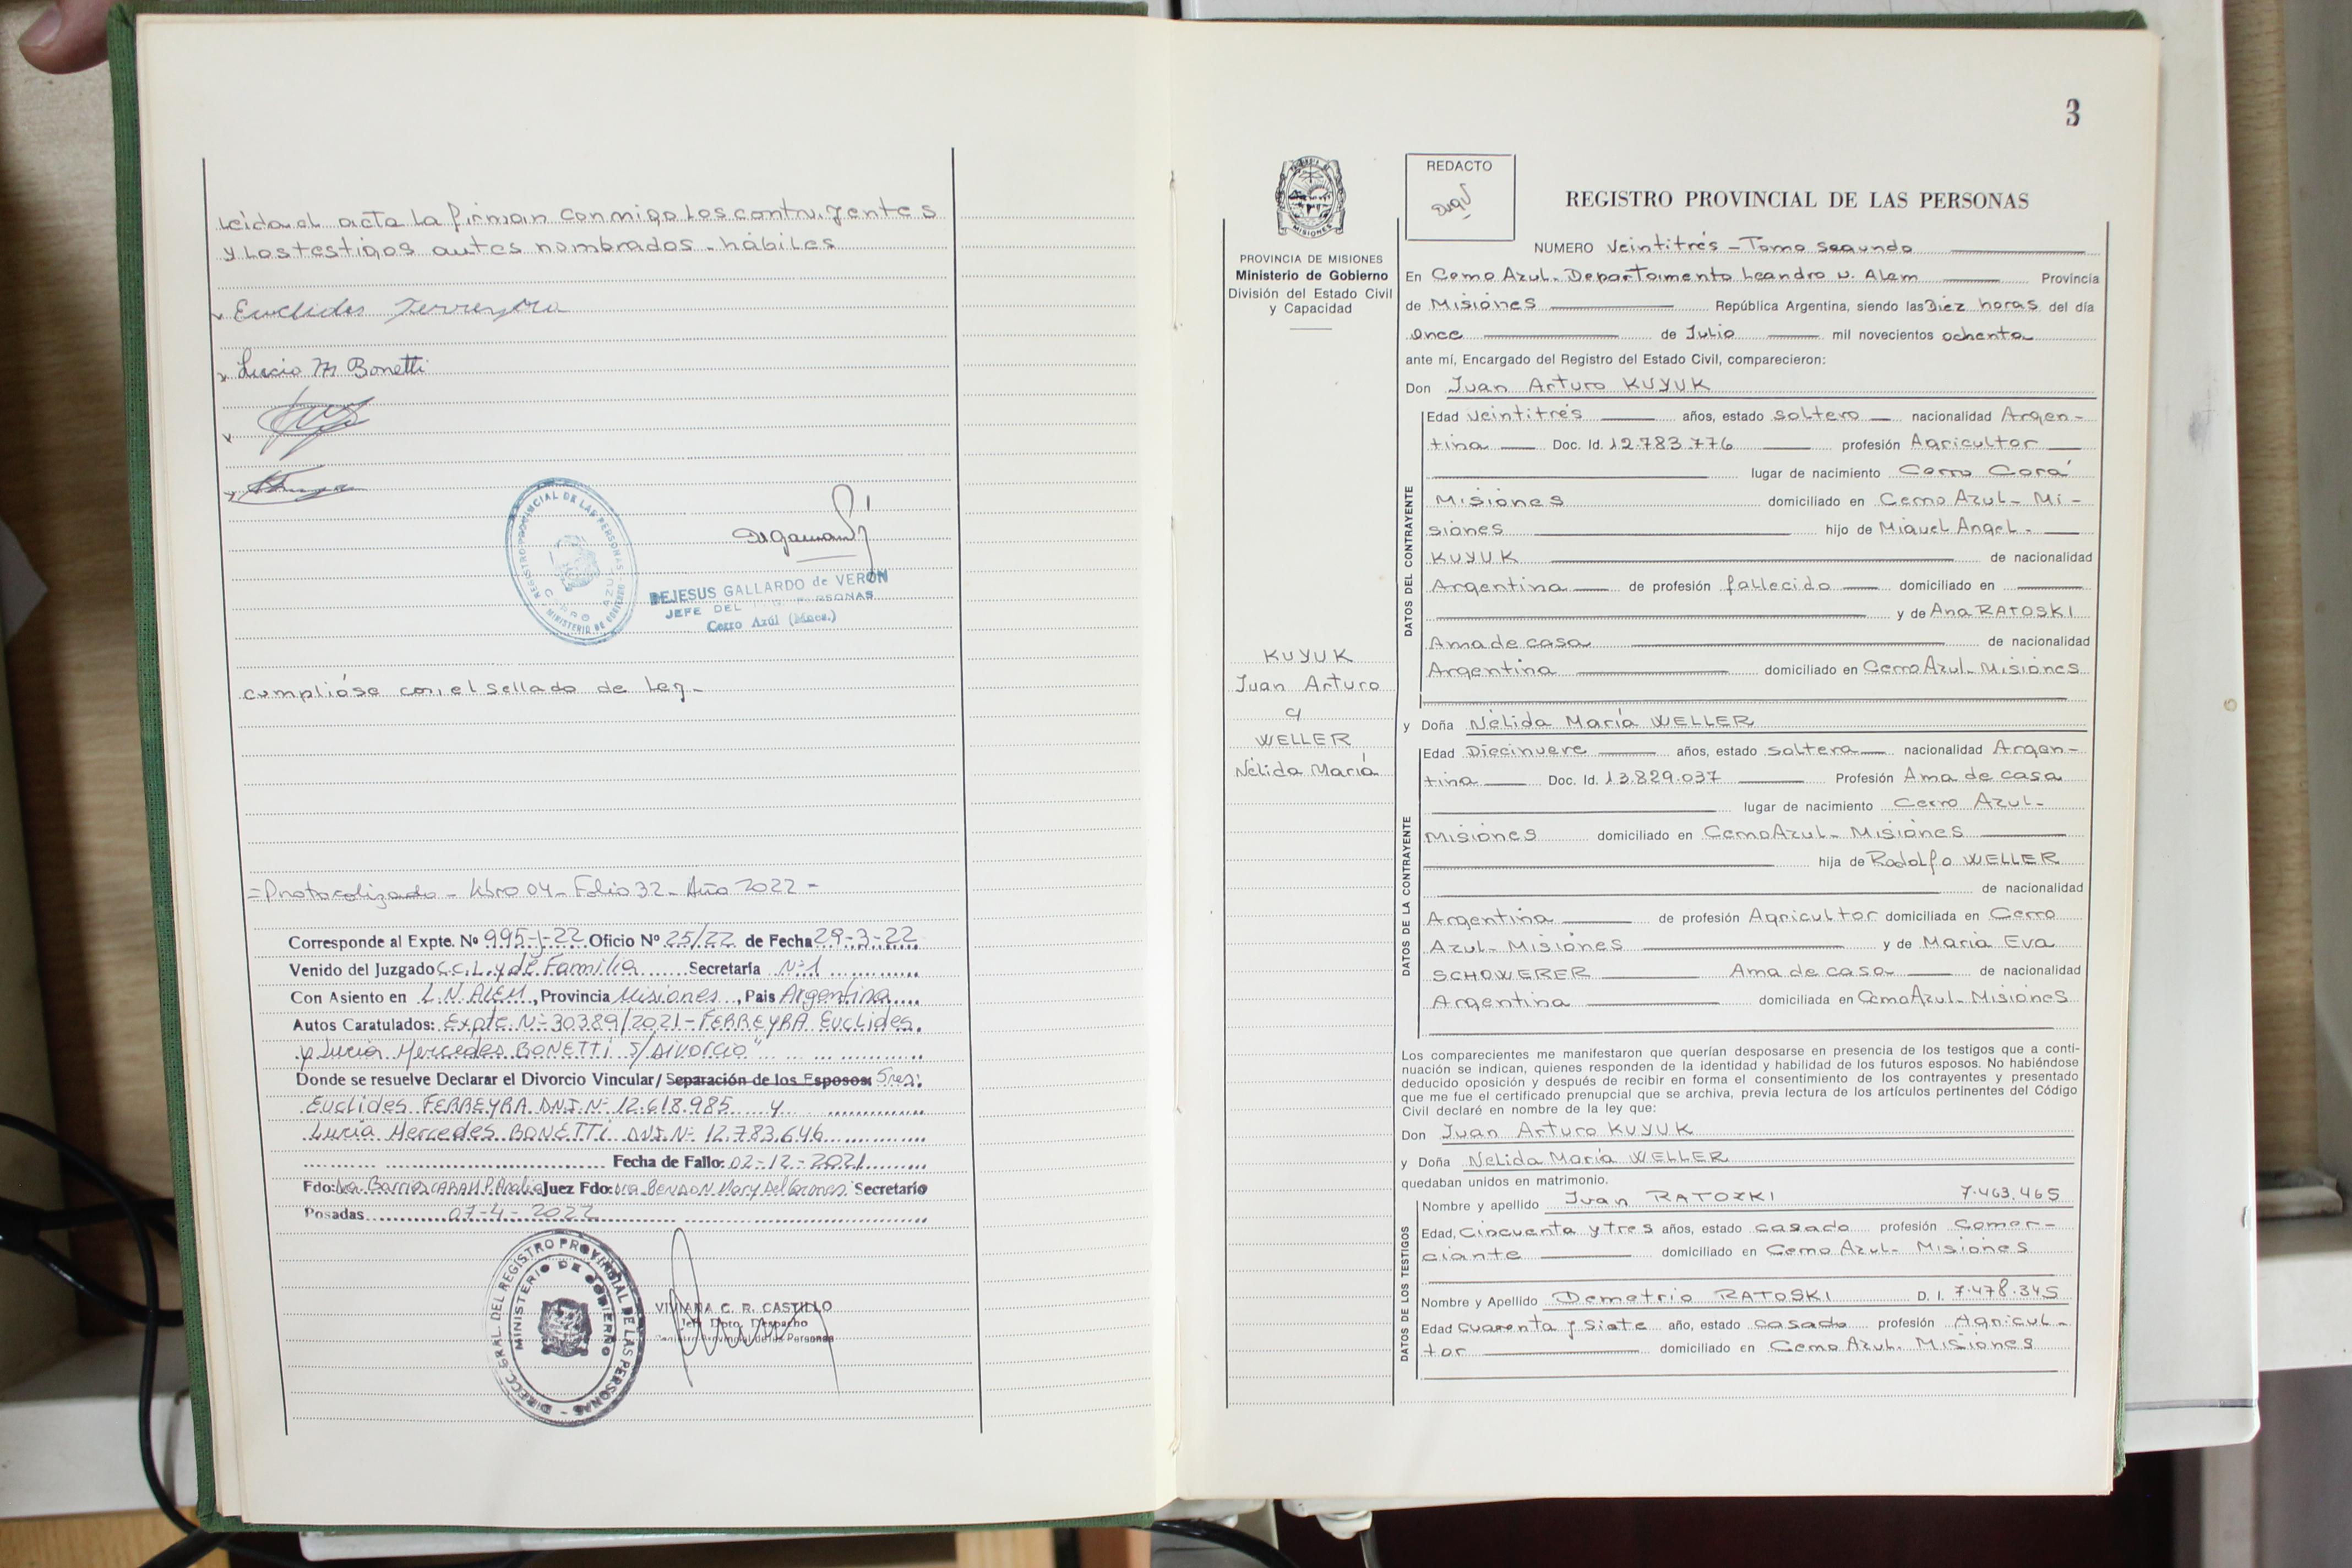 Leida el acta la firman conmigo los contrayentes
y los testigos antes nombrados - hábiles
Euclides Ferreyra
Lucia M Bonetti
REGISTRO PROVINCIAL DE LAS PERSONAS
MINISTERIO DE GOBIERNO
CERRO AZUL
DEJESUS GALLARDO de VERON
JEFE DEL REG. PERSONAS
Cerro Azúl (Mnes.)
cumplióse con el sellado de Ley -
= Protocolizado - Libro 04 - Folio 32 - Año 2022 -
Corresponde al Expte. Nº 995-J-22 Oficio Nº 25/22 de Fecha 29-3-22
Venido del Juzgado C.C.L. y de Familia Secretaría Nº 1
Con Asiento en L.N. ALEM, Provincia Misiones, Pais Argentina
Autos Caratulados: Expte. Nº 30389/2021 - FERREYRA Euclides
y Lucia Mercedes BONETTI S/Divorcio"
Donde se resuelve Declarar el Divorcio Vincular/ Separación de los Esposos: Sres:
Euclides FERREYRA DNI. Nº 12.618.985 y
Lucía Mercedes BONETTI DNI. Nº 12.783.646
Fecha de Fallo: 02-12-2021
Fdo: Dra. Barrios Juez Fdo: Dra. Mary Del Secretario
Posadas 07-4-2022
DIRECC. GRAL. DEL REGISTRO PROVINCIAL DE LAS PERSONAS
MINISTERIO DE GOBIERNO
VIVIANA C. R. CASTILLO
Jefe Dpto. Despacho
Registro Provincial de las Personas
3
MISIONES
PROVINCIA DE MISIONES
Ministerio de Gobierno
División del Estado Civil
y Capacidad
KUYUK
Juan Arturo
y
WELLER
Nélida María
REDACTO
REGISTRO PROVINCIAL DE LAS PERSONAS
NUMERO Veintitrés - Tomo segundo
En Cerro Azul - Departamento Leandro N. Alem Provincia
de Misiones República Argentina, siendo las Diez horas del día
once de Julio mil novecientos ochenta
ante mí, Encargado del Registro del Estado Civil, comparecieron:
Don Juan Arturo KUYUK
DATOS DEL CONTRAYENTE
Edad veintitrés años, estado soltero nacionalidad Argen-
tina Doc. Id. 12.783.776 profesión Agricultor
lugar de nacimiento Cerro Corá
Misiones domiciliado en Cerro Azul - Mi-
siones hijo de Miguel Angel -
KUYUK de nacionalidad
Argentina de profesión fallecido domiciliado en
y de Ana RATOSKI
Ama de casa de nacionalidad
Argentina domiciliado en Cerro Azul - Misiones
y Doña Nélida María WELLER
DATOS DE LA CONTRAYENTE
Edad Diecinueve años, estado soltera nacionalidad Argen-
tina Doc. Id. 13.829.037 Profesión Ama de casa
lugar de nacimiento Cerro Azul -
Misiones domiciliado en Cerro Azul - Misiones
hija de Rodolfo WELLER
de nacionalidad
Argentina de profesión Agricultor domiciliada en Cerro
Azul - Misiones y de María Eva
SCHOWERER Ama de casa de nacionalidad
Argentina domiciliada en Cerro Azul - Misiones
Los comparecientes me manifestaron que querían desposarse en presencia de los testigos que a conti-
nuación se indican, quienes responden de la identidad y habilidad de los futuros esposos. No habiéndose
deducido oposición y después de recibir en forma el consentimiento de los contrayentes y presentado
que me fue el certificado prenupcial que se archiva, previa lectura de los artículos pertinentes del Código
Civil declaré en nombre de la ley que:
Don Juan Arturo KUYUK
y Doña Nélida María WELLER
quedaban unidos en matrimonio.
DATOS DE LOS TESTIGOS
Nombre y apellido Juan RATOSKI 7.463.465
Edad, Cincuenta y tres años, estado casado profesión Comer-
ciante domiciliado en Cerro Azul - Misiones
Nombre y Apellido Demetrio RATOSKI D. I. 7.478.345
Edad cuarenta y siete año, estado casado profesión Agricul-
tor domiciliado en Cerro Azul - Misiones